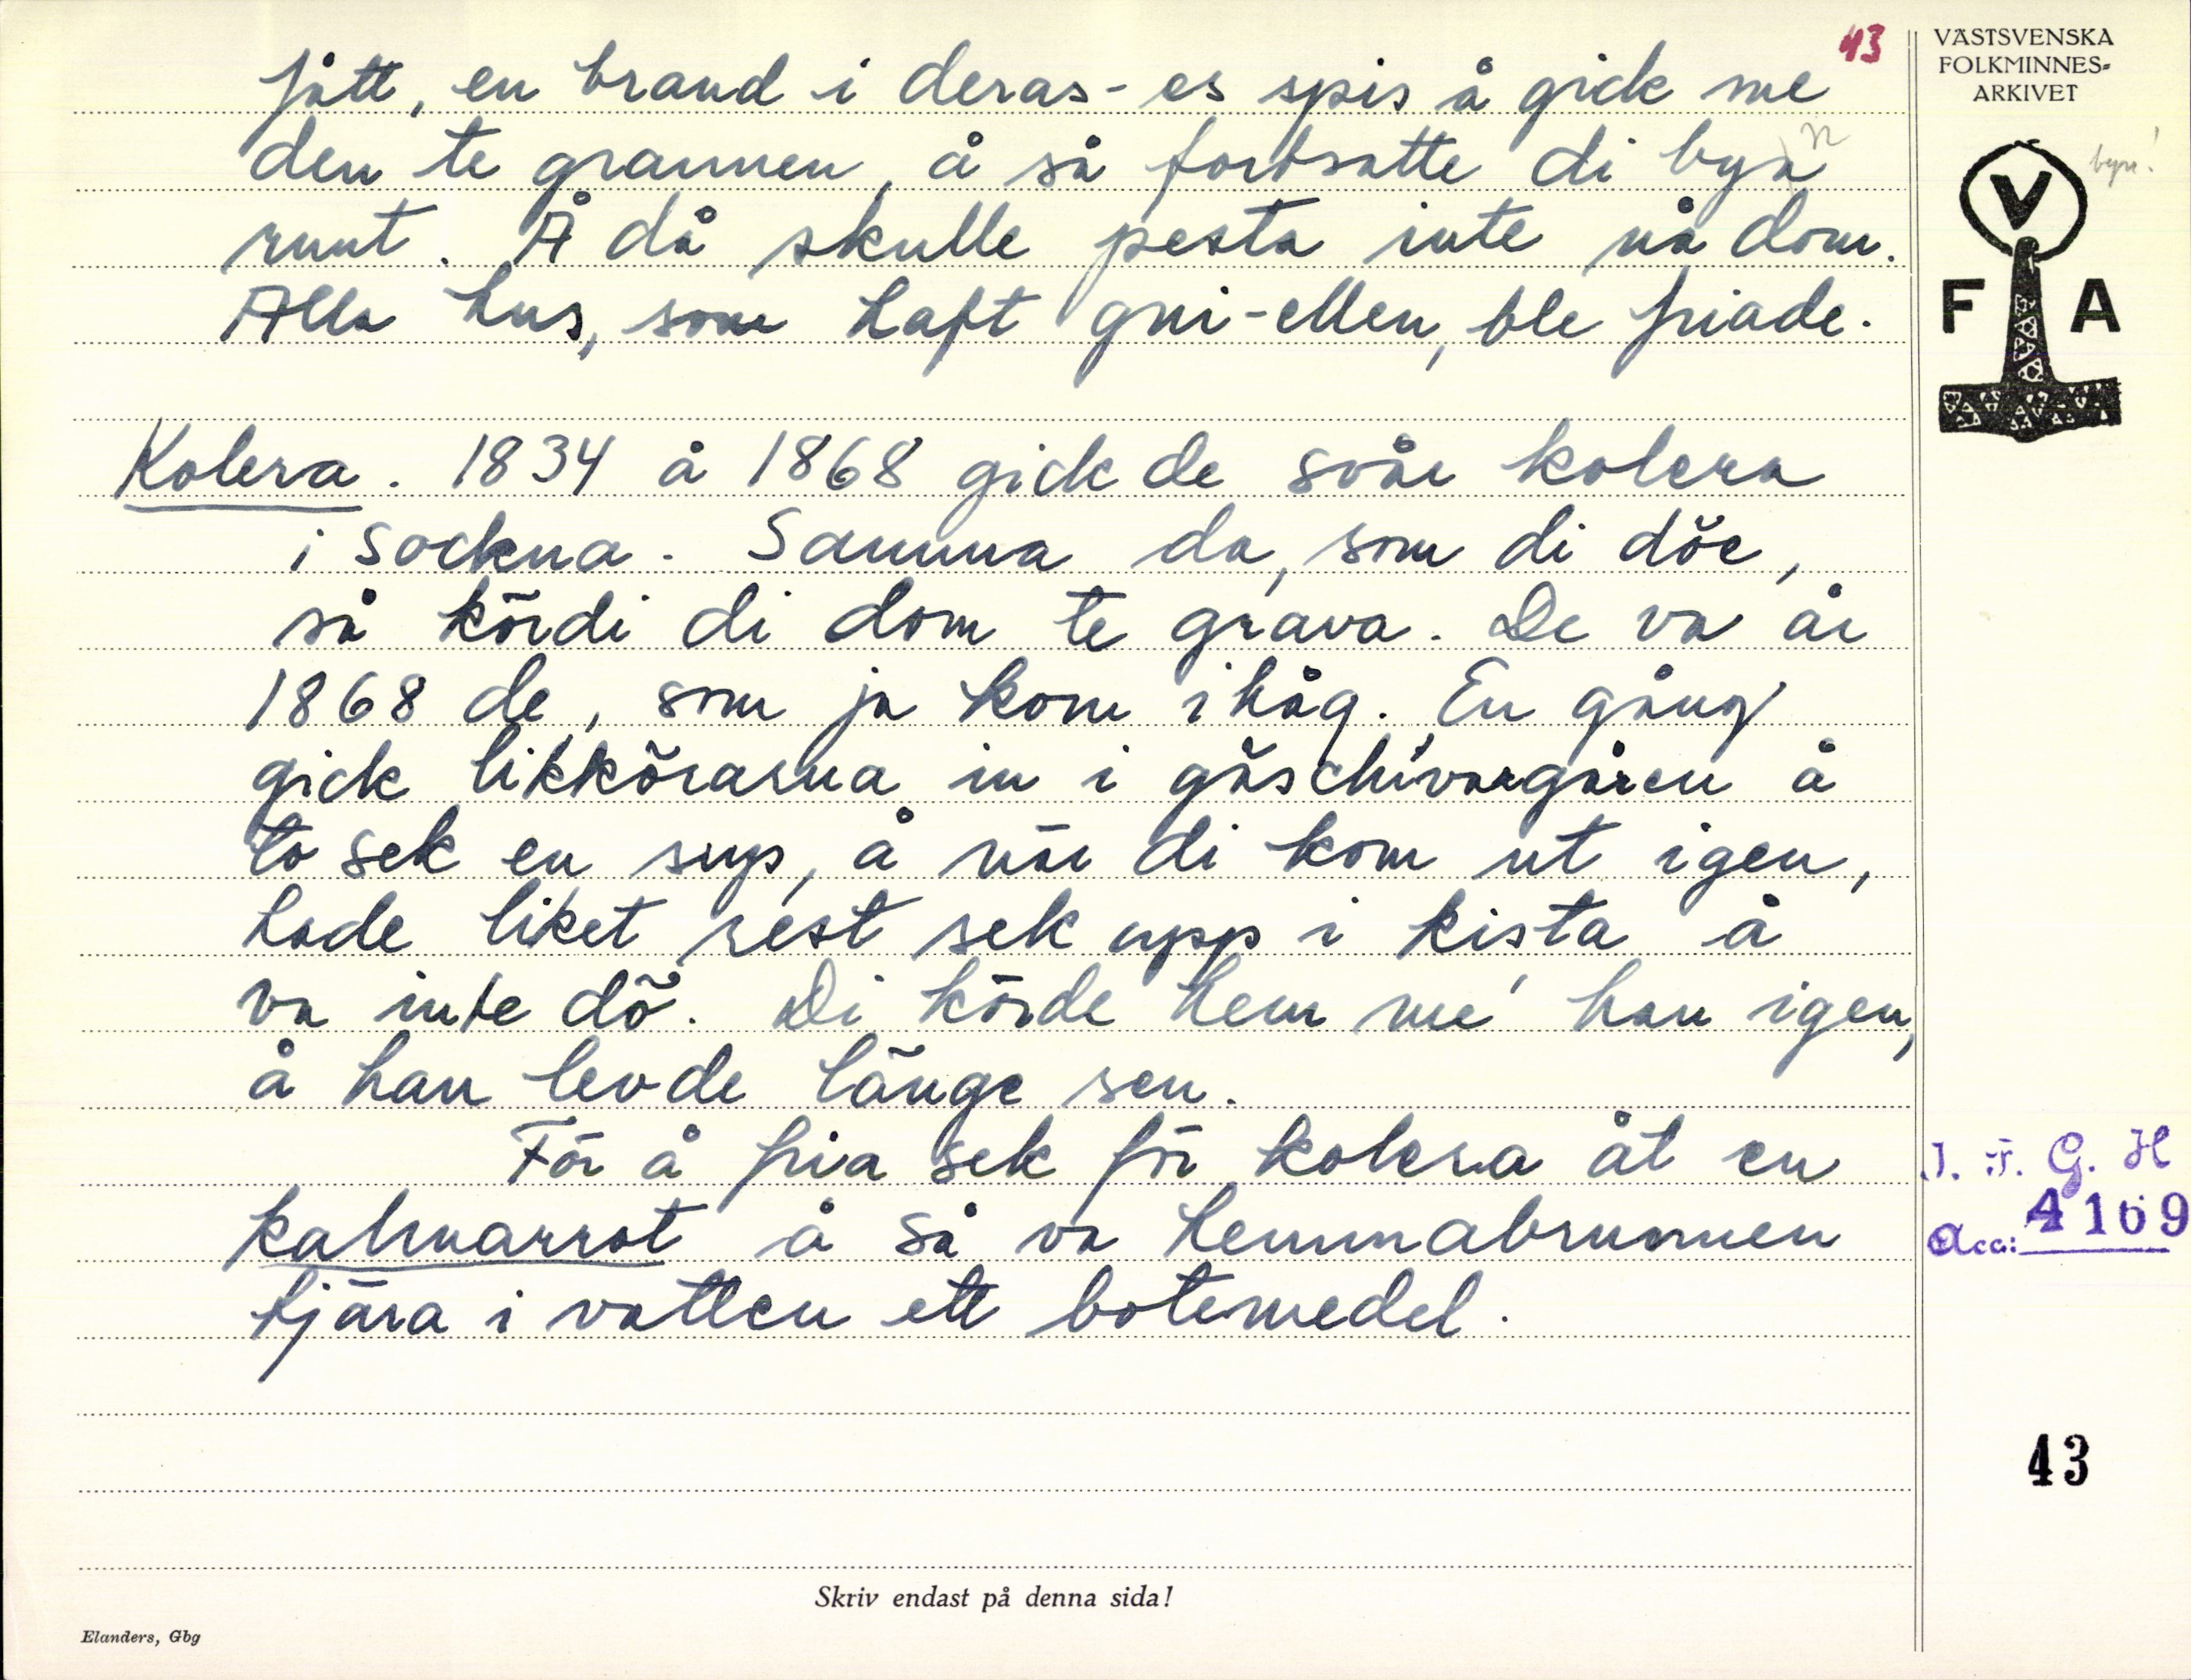 43
VÄSTSVENSKA
FOLKMINNES-
ARKIVET
fått, en brand i deras-es spis å gick me
den te grannen, å så fortsatte di byn
byn!
runt. Å då skulle pesta inte nå dom.
Alla hus, som haft gni-ellen, ble friade.
V
F A
Kolera. 1834 å 1868 gick de svår kolera
i sockna. Samma da, som di döe,
så kördi di dom te grava. De va år
1868 de, som ja kom ihåg. En gång
gick likkörarna in i gäschivargåren å
to sek en sup, å när di kom ut igen,
hade liket rest sek upp i kista å
va inte dö. Di körde hem me han igen,
å han levde länge sen.
För å fria sek för kolera åt en
kalmarrot å så va hemmabrunnen
tjära i vatten ett botemedel.
I. F. G. H
Acc: 4109
43
Skriv endast på denna sida!
Elanders, Gbg